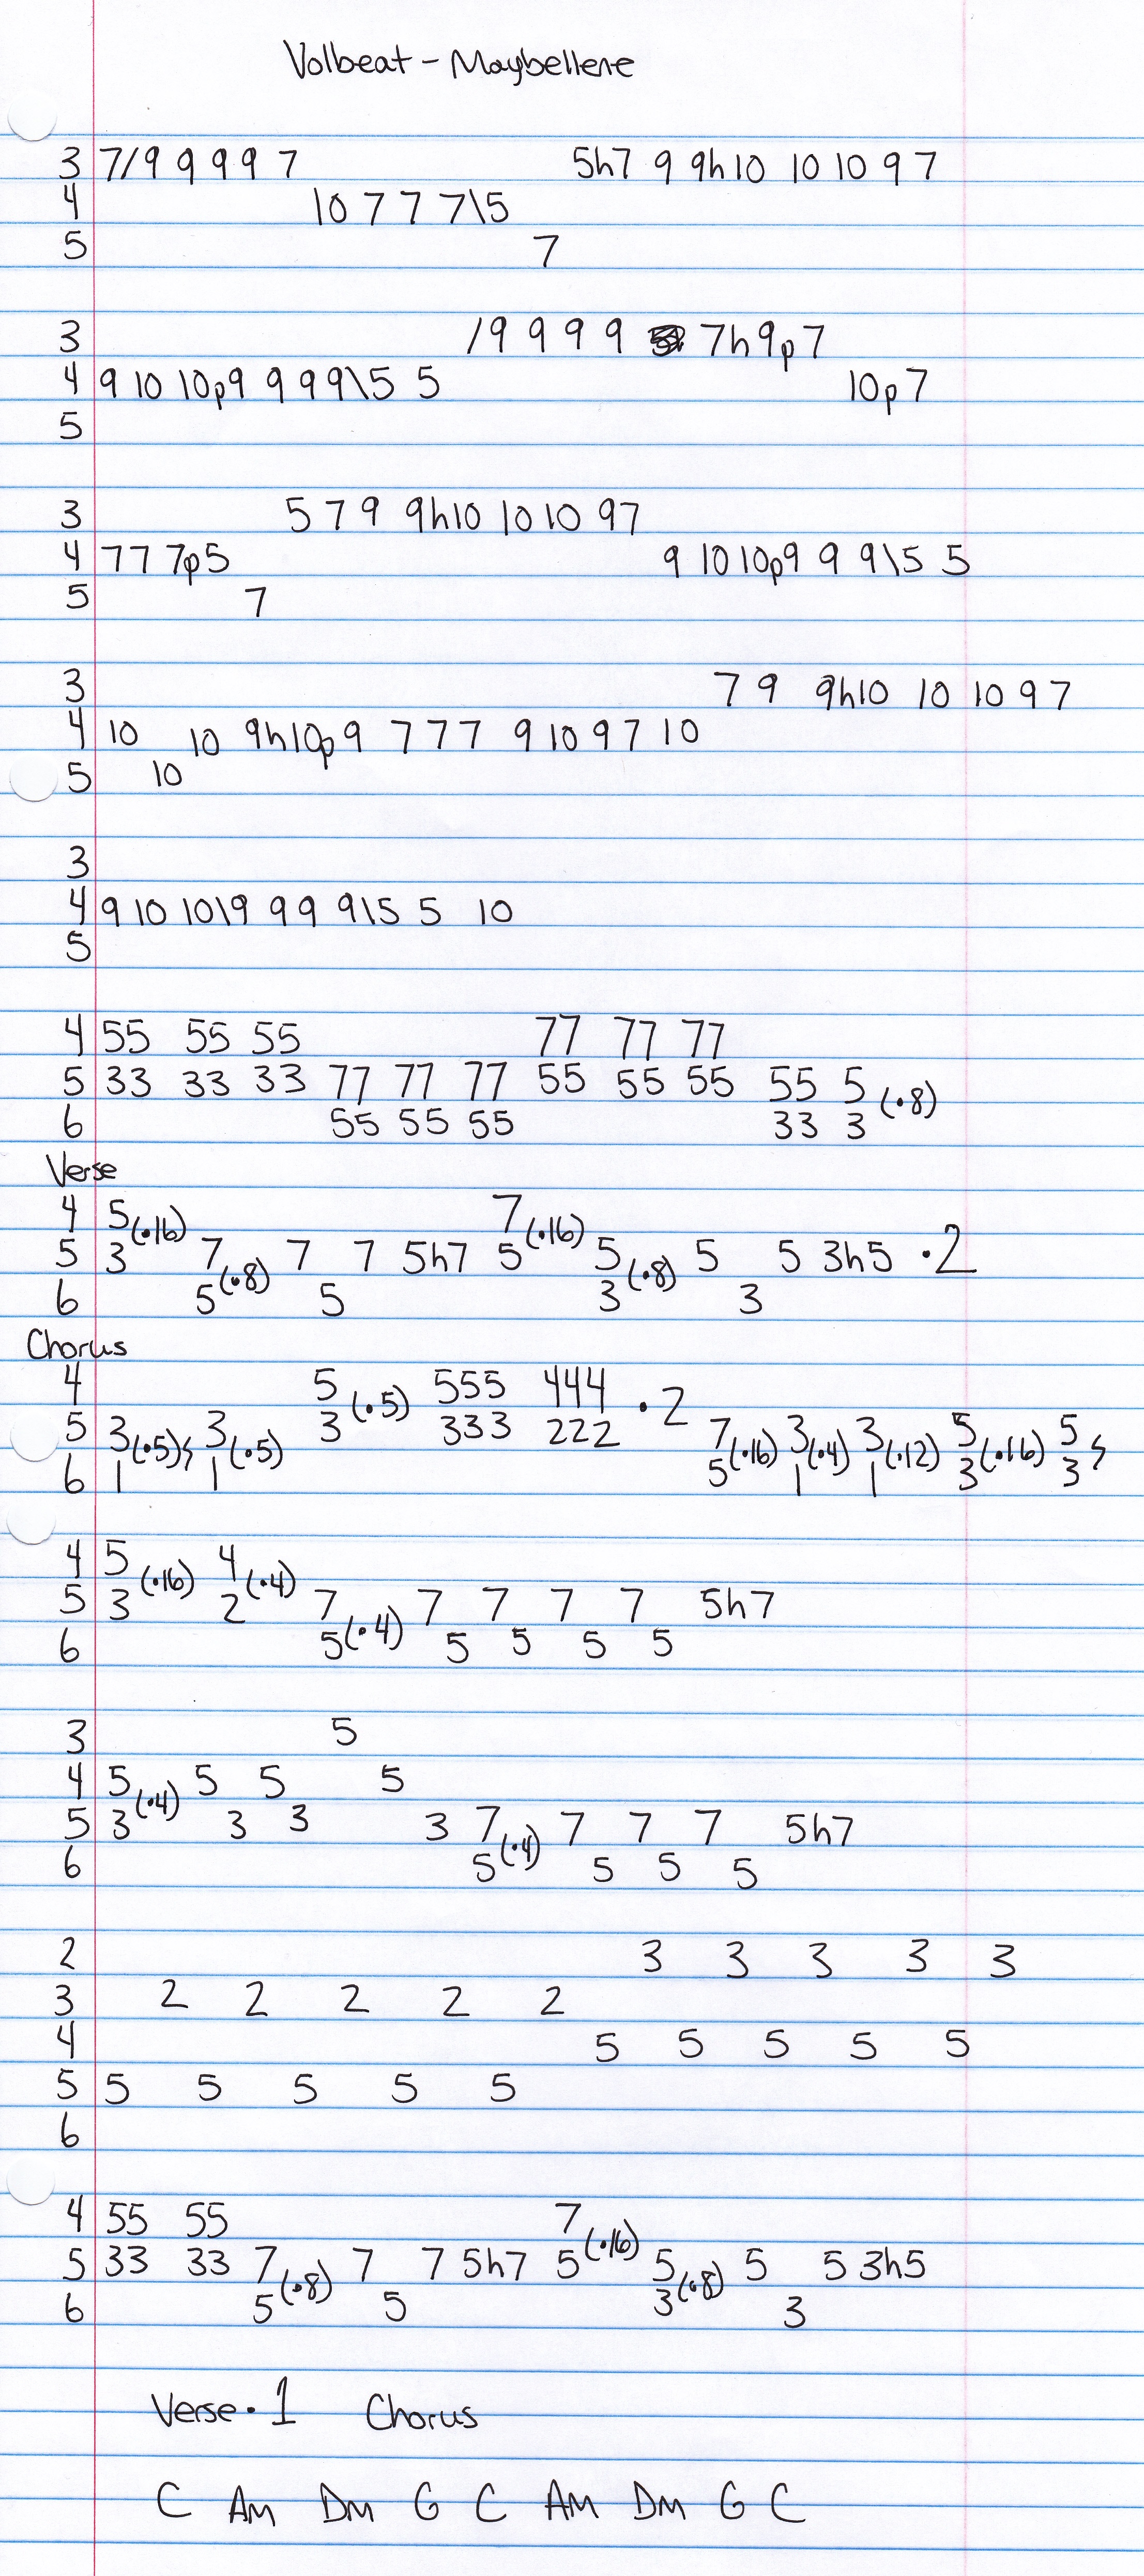 Volbeat - Maybellene
3 7/9 9 9 9 7 5h7 9 9h10 10 10 9 7
4 10 7 7 7\5
5 7
3 /9 9 9 9 7h9p7
4 9 10 10p9 9 9 9\5 5 10p7
5
3 5 7 9 9h10 10 10 97
4 77 7p5 9 10 10p9 9 9\5 5
5 7
3 7 9 9h10 10 10 9 7
4 10 10 9h10p9 7 7 7 9 10 9 7 10
5 10
3
4 9 10 10\9 9 9 9\5 5 10
5
4 55 55 55 77 77 77
5 33 33 33 77 77 77 55 55 55 55 5 (·8)
6 55 55 55 33 3
Verse
4 5 (·16) 7 (·16)
5 3 7 (·8) 7 7 5h7 5 5 (·8) 5 5 3h5 ·2
6 5 5 3 3
Chorus
4 5 (·5) 555 444 ·2
5 3 (·5) 3 (·5) 3 333 222 7 (·16) 3 (·4) 3 (·12) 5 (·16) 5
6 1 1 5 1 1 3 3
4 5 (·16) 4 (·4)
5 3 2 7 (·4) 7 7 7 7 5h7
6 5 5 5 5 5
3 5
4 5 (·4) 5 5 5
5 3 3 3 3 7 (·4) 7 7 7 5h7
6 5 5 5 5
2 3 3 3 3 3
3 2 2 2 2 2
4 5 5 5 5 5
5 5 5 5 5 5
6
4 55 55 7 (·16)
5 33 33 7 (·8) 7 7 5h7 5 5 (·8) 5 5 3h5
6 5 5 3 3
Verse · 1 Chorus
C Am Dm G C Am Dm G C